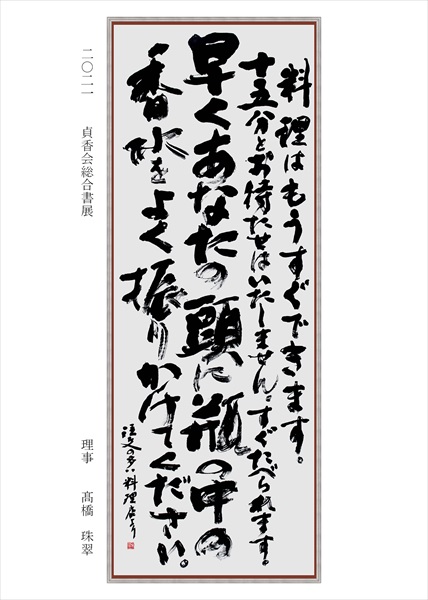 料理はもうすぐできます。
十五分とお待たせはいたしません。すぐたべられます。
早くあなたの頭に瓶の中の
香水をよく振りかけてください。
注文の多い料理店より
二〇二一　貞香会総合書展
理事　髙橋　珠翠